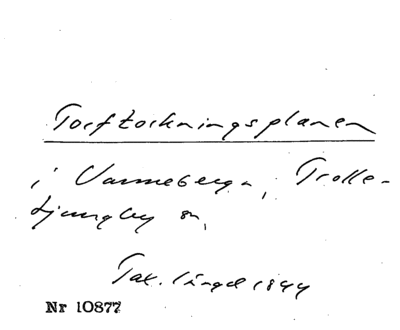 Torftorkningsplanen
i Vanneberga, Trolle-
Ljungby sn,
Tax. längd 1844
Nr 10877